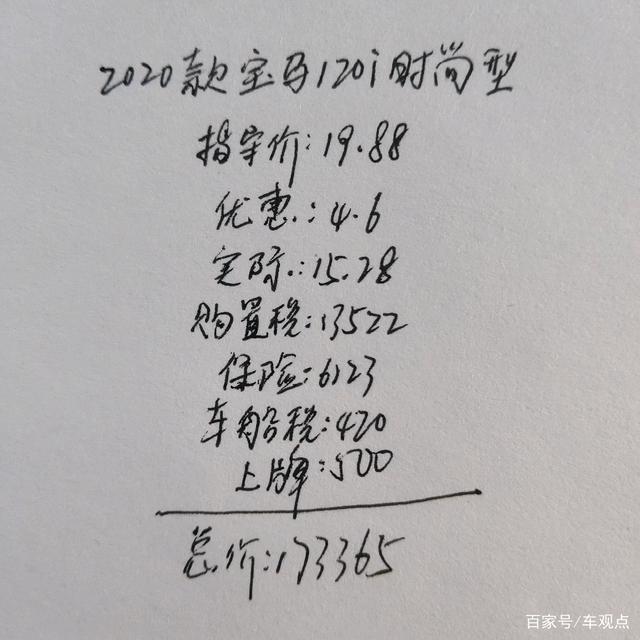 2020款宝马120i时尚型
指导价:19.88
优惠:4.6
实际:15.28
购置税:13522
保险:6123
车船税:420
上牌:500
总价:173365
百家号/车观点